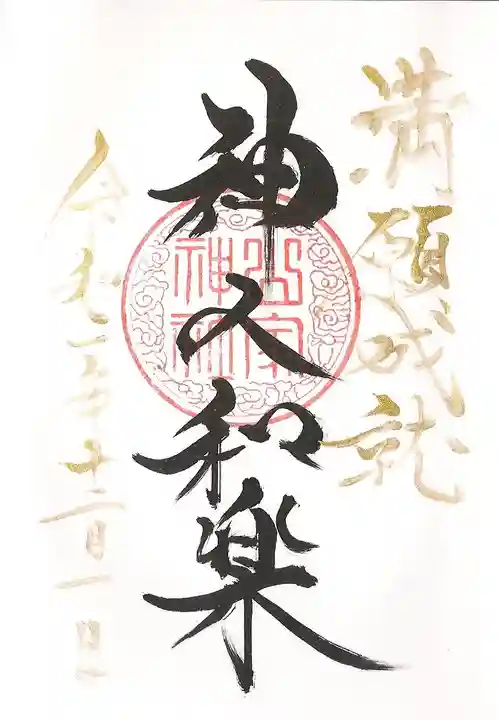 満願成就
神人和楽
山家
神社
令和 年十二月一日